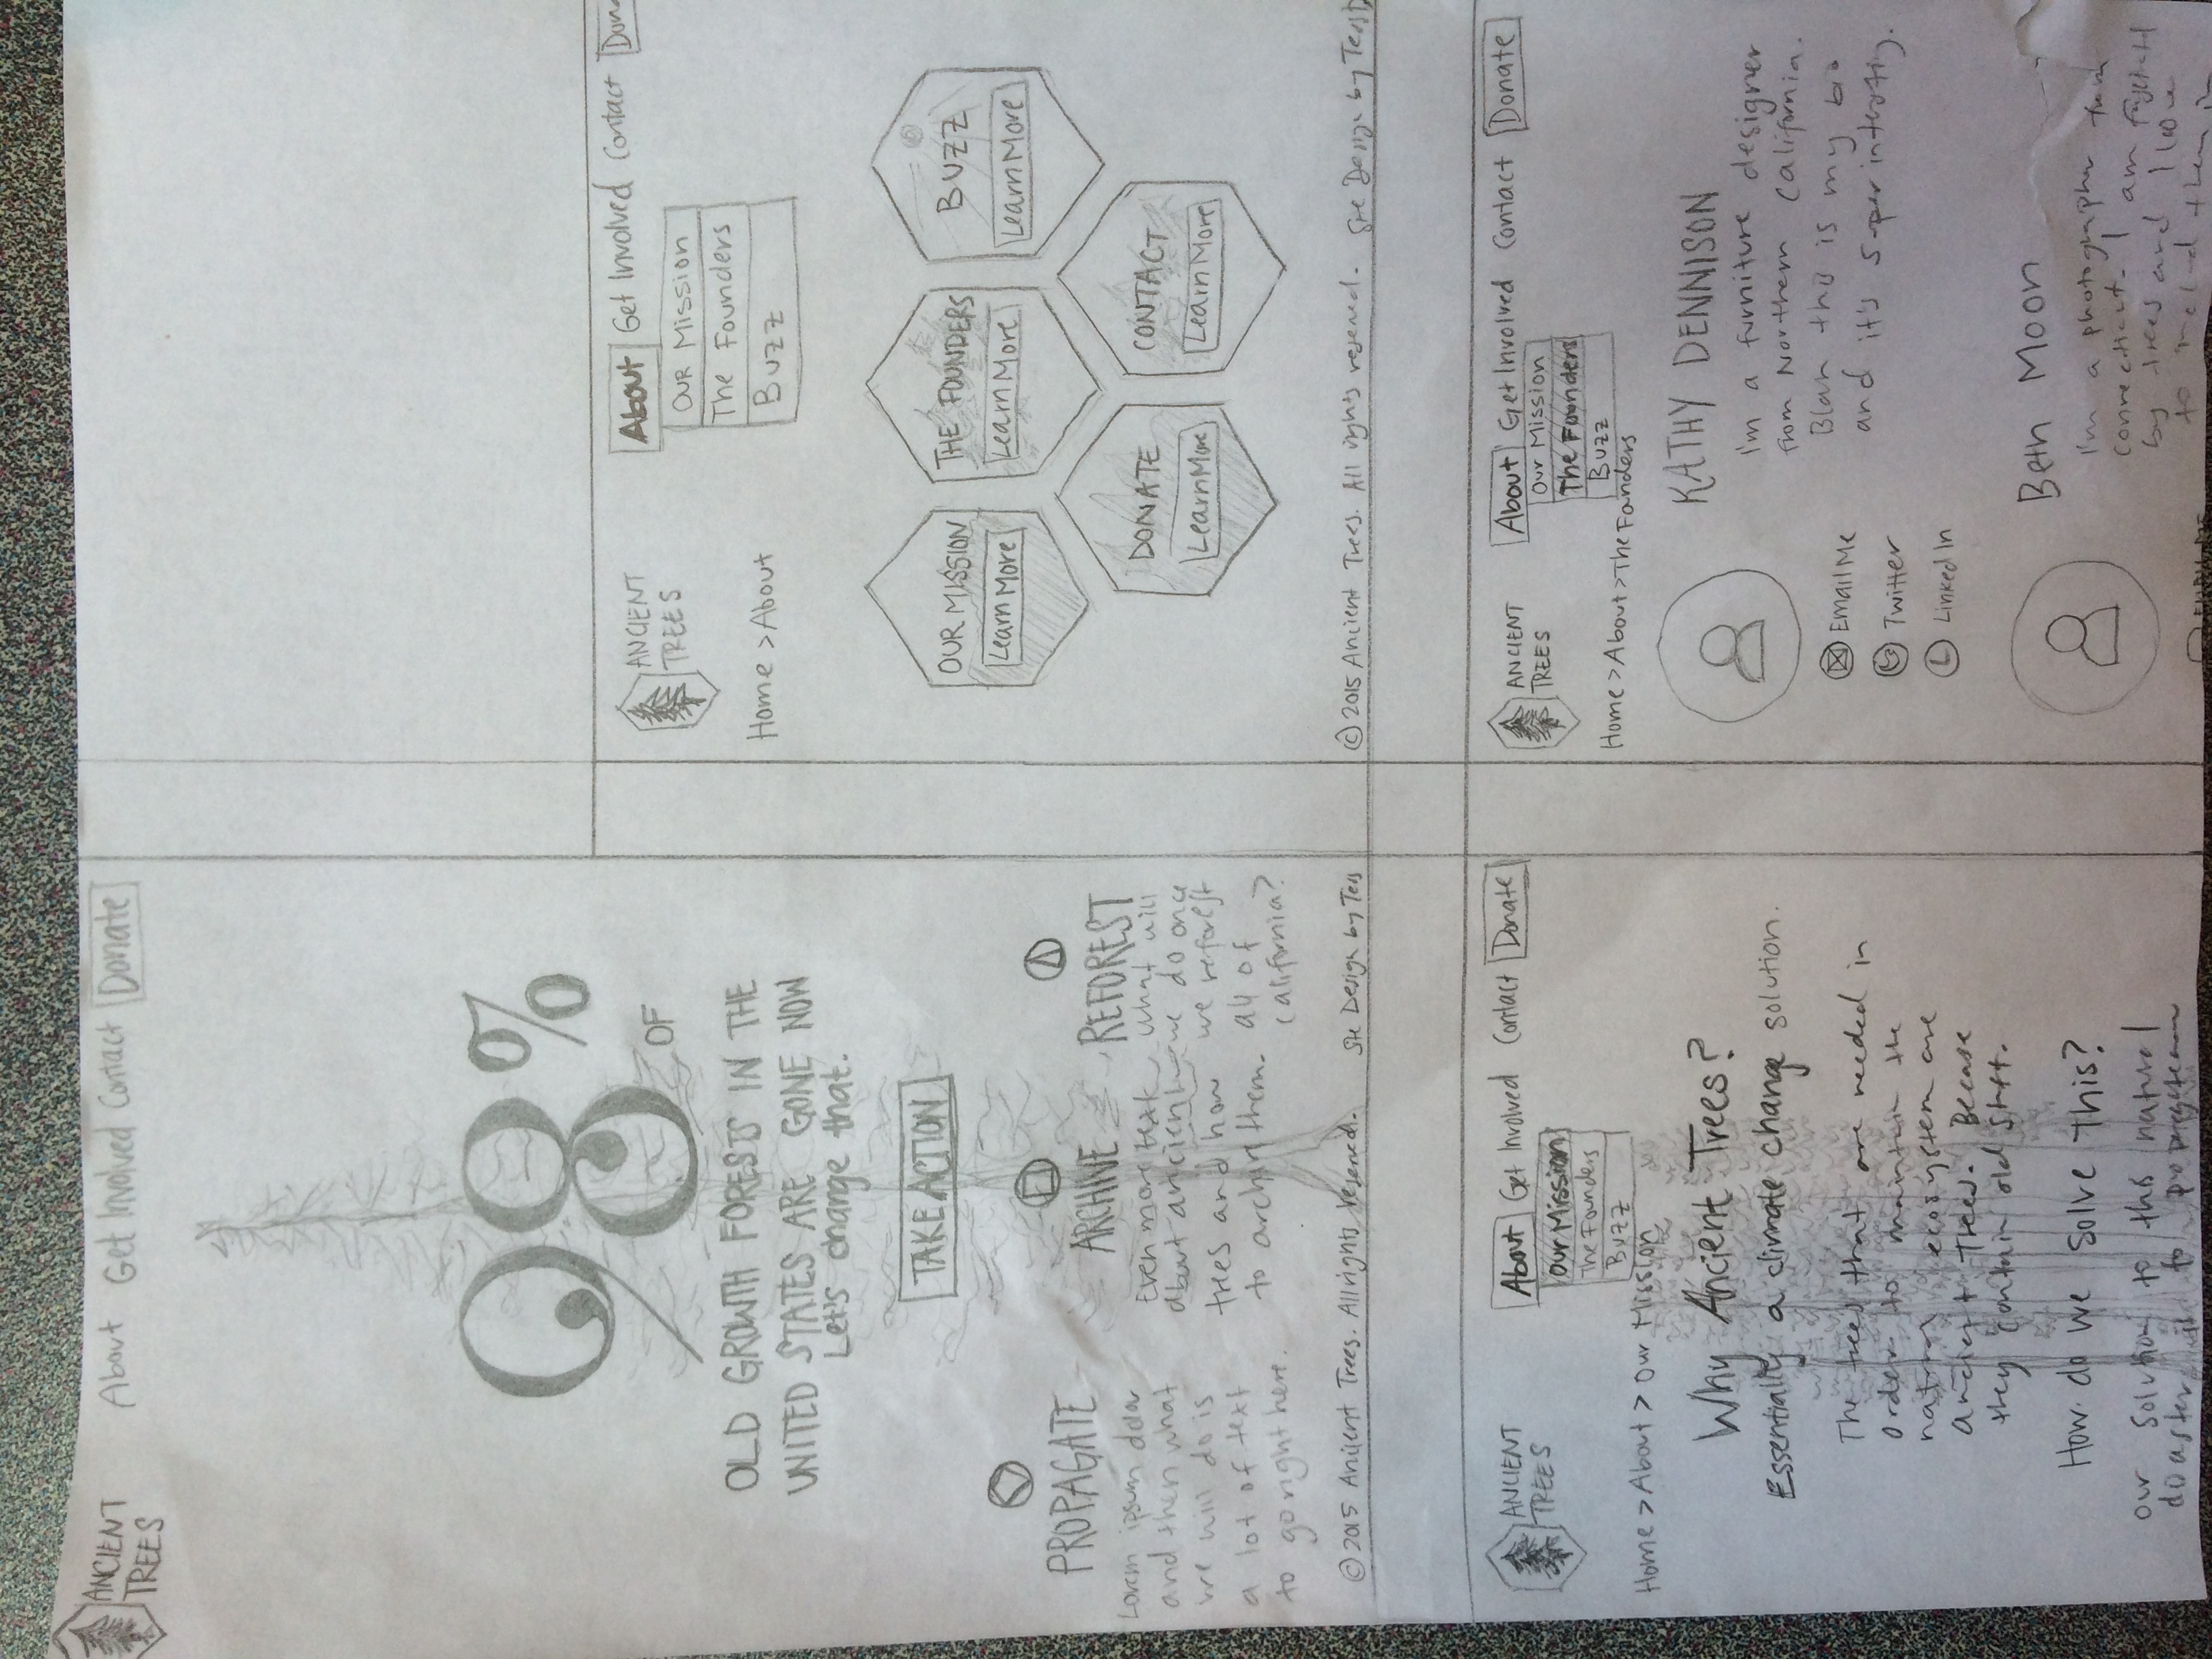 ANCIENT
TREES
About Get Involved Contact Donate
98%
OF
OLD GROWTH FORESTS IN THE
UNITED STATES ARE GONE NOW
Let's change that.
TAKE ACTION
PROPAGATE
Lorem ipsum dolor
and then what
we will do is
a lot of text
to go right here.
ARCHIVE
Even more text
about ancient
trees and how
to archive them.
REFOREST
what will
we do once
we reforest
all of
California?
©2015 Ancient Trees. All rights reserved. Site Design by Tess
ANCIENT
TREES
About Get Involved Contact
Our Mission
The Founders
Buzz
Home > About
OUR MISSION
Learn More
THE FOUNDERS
Learn More
BUZZ
Learn More
DONATE
Learn More
CONTACT
Learn More
©2015 Ancient Trees. All rights reserved. Site Design by
ANCIENT
TREES
About Get Involved Contact Donate
Our Mission
The Founders
Buzz
Home > About > Our Mission
Why Ancient Trees?
Essentially a climate change solution.
The trees that are needed in
order to maintain the
natural ecosystem are
Ancient Trees. Becase
they contain old stuff.
How do we solve this?
our solution to this natural
is to
ANCIENT
TREES
About Get Involved Contact Donate
Our Mission
The Founders
Buzz
Home > About > The Fonders
KATHY DENNISON
I'm a furniture designer
from Northern California.
Blah this is my bio
and it's super
Email Me
Twitter
Linked In
Beth Moon
I'm a photographer from
I am
by trees and I love
to them in